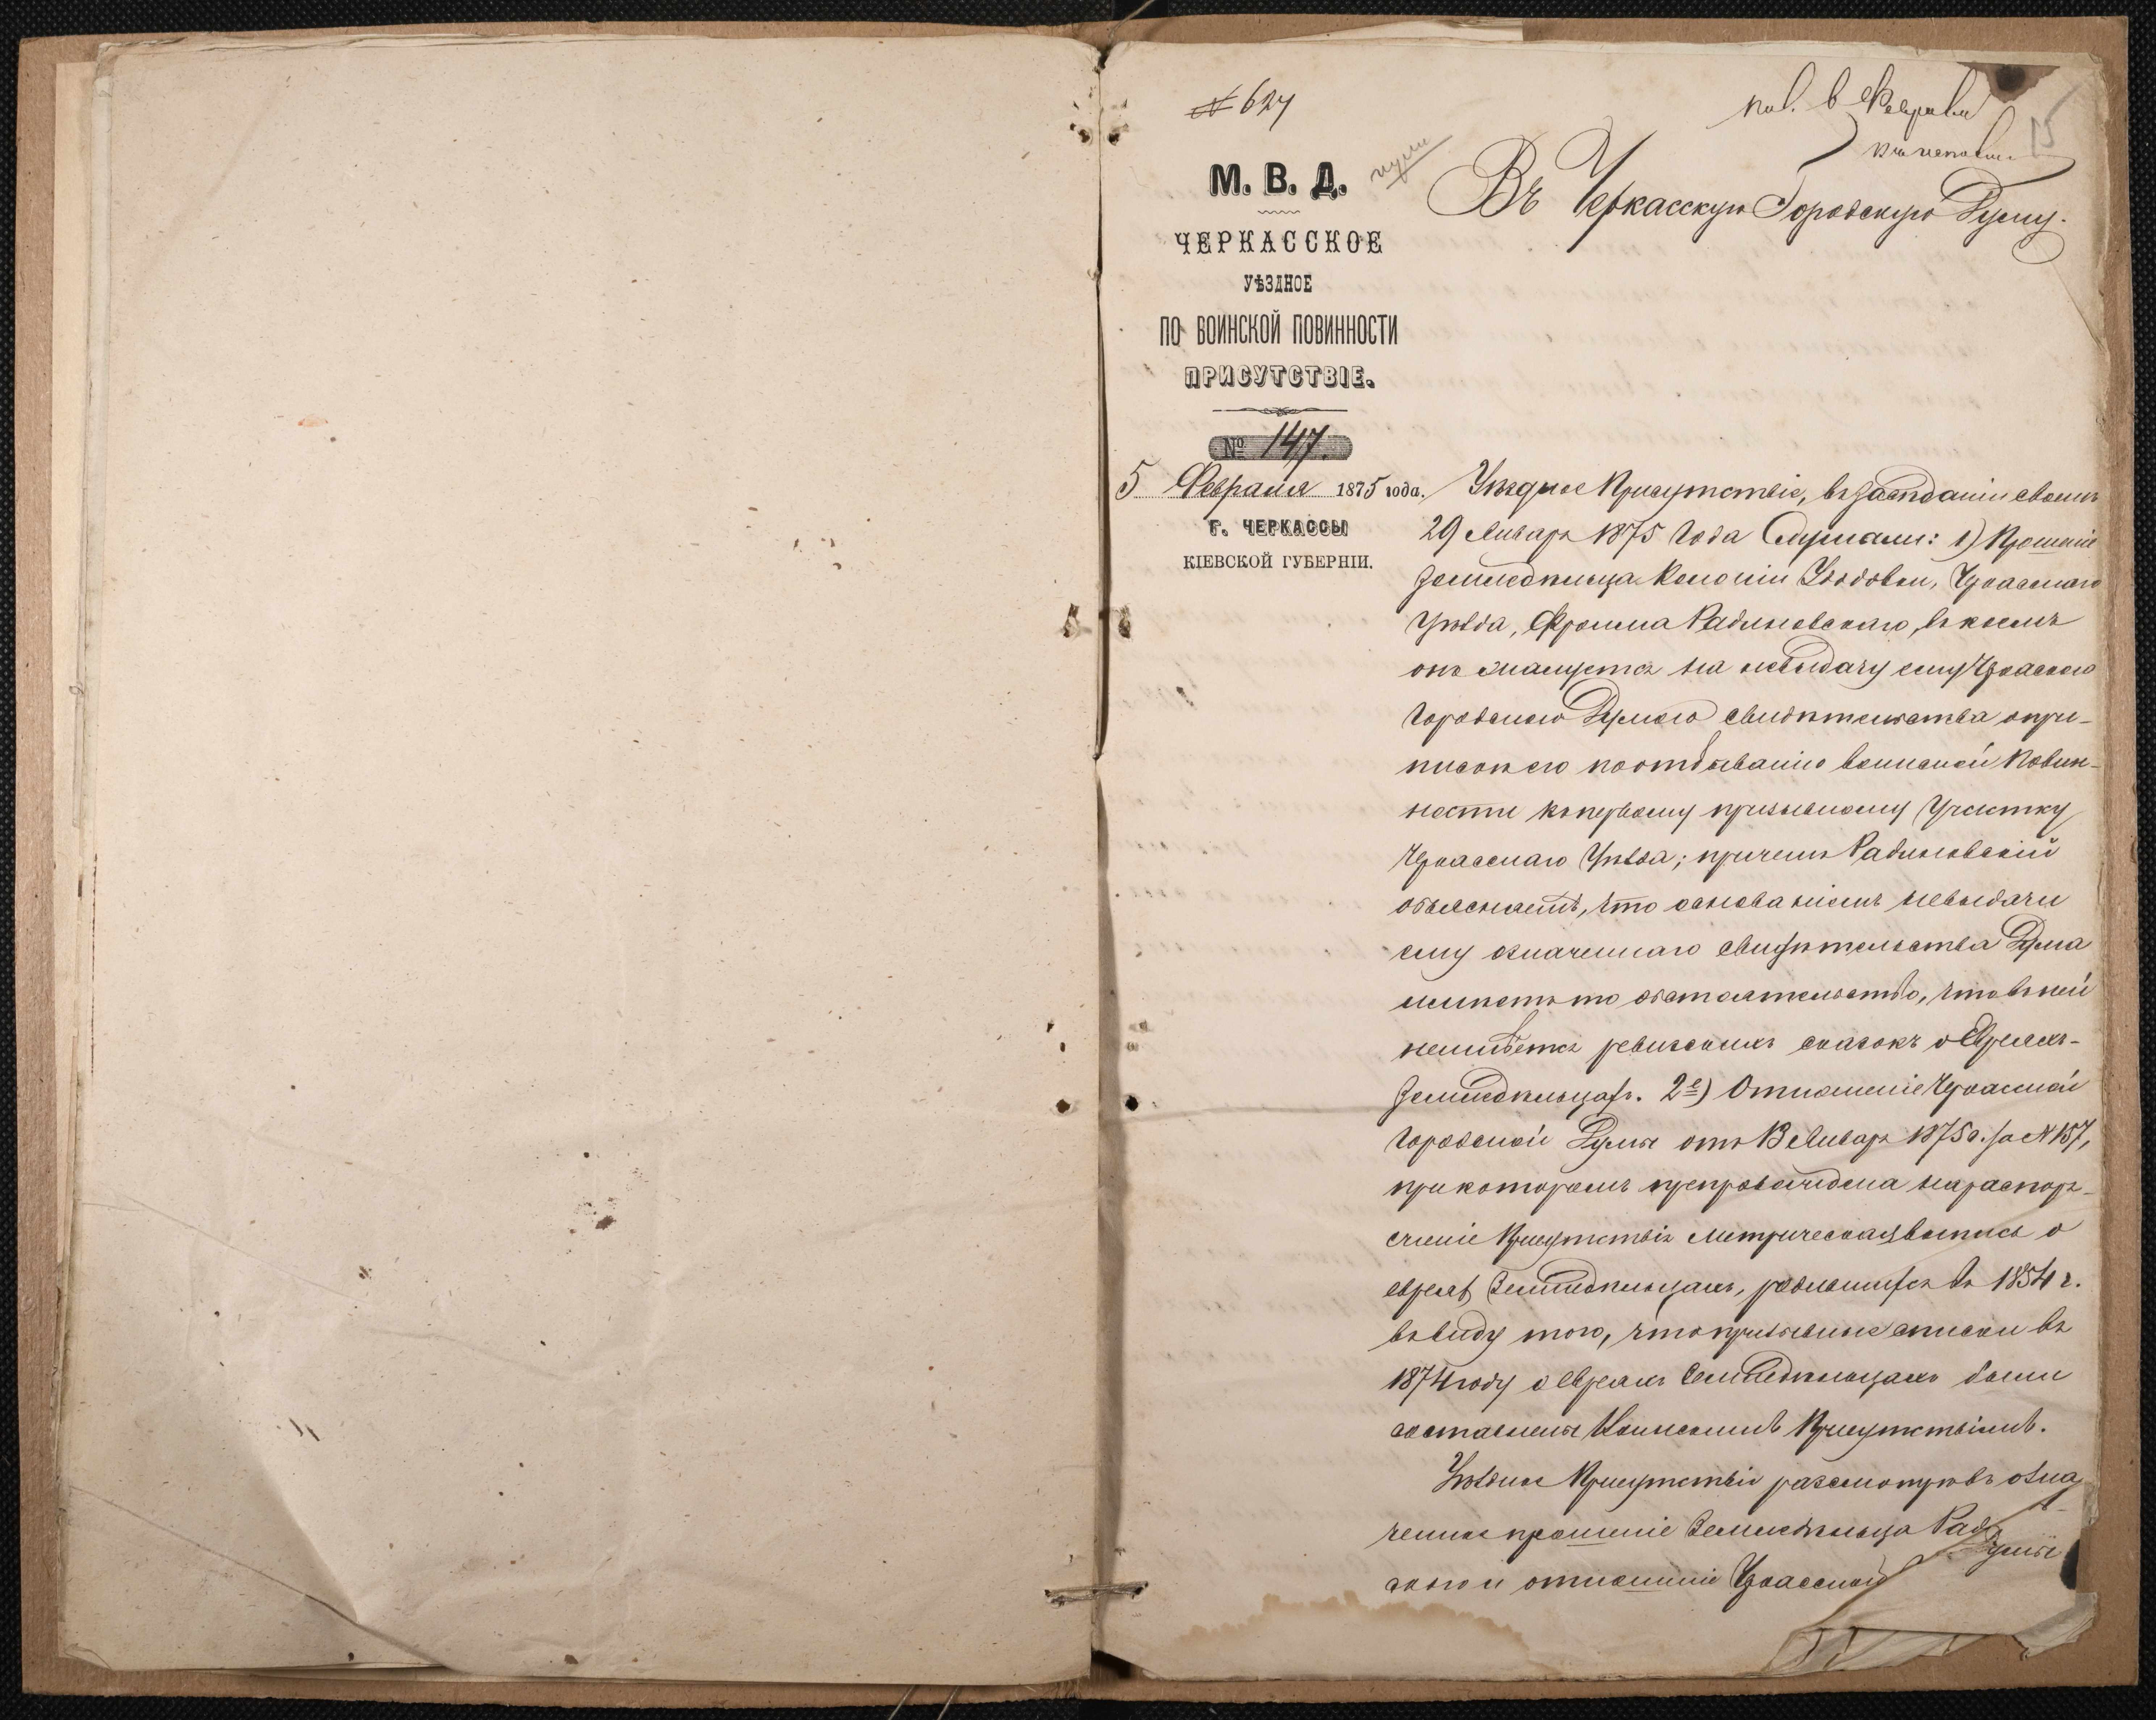 № 627
пол. 6 Февраля
15
М. В. Д.
ЧЕРКАССКОЕ
УѢЗДНОЕ
ПО ВОИНСКОЙ ПОВИННОСТИ
ПРИСУТСТВІЕ.
№ 147.
5 Февраля 1875 года.
Г. ЧЕРКАССЫ
КІЕВСКОЙ ГУБЕРНІИ.
Въ Черкасскую Городскую Думу.
Уѣздное Присутствіе, въ засѣданіи своемъ
29 Января 1875 года Слушали: 1) Прошеніе
Земледѣльца Колоніи Черкасскаго
Уѣзда, Фроима Радиновскаго, въ коемъ
онъ жалуется на невыдачу ему Черкасскою
Городскою Думою свидѣтельства о при-
пискѣ его по отбыванію воинской Повин-
ности къ первому призывному Участку
Черкасскаго Уѣзда; причемъ Радиновскій
объясняетъ, что основаніемъ невыдачи
ему означеннаго свидѣтельства Дума
то обстоятельство, что въ ней
неимѣется ревизскихъ сказокъ о Евреяхъ-
Земледѣльцахъ. 2е) Отношеніе Черкасской
Городской Думы отъ 13 Января 1875 г. за № 157,
при которомъ препровождена на распоря-
женіе Присутствія Метрическая выпись о
евреяхъ Земледѣльцахъ, родившихся въ 1854 г.
въ виду того, что призывные списки въ
1874 году о Евреяхъ Земледѣльцахъ были
составлены Воинскимъ Присутствіемъ.
Уѣздное Присутствіе разсмотрѣвъ озна-
ченное прошеніе Земледѣльца Рад
скаго и отношеніе Черкасской Думы